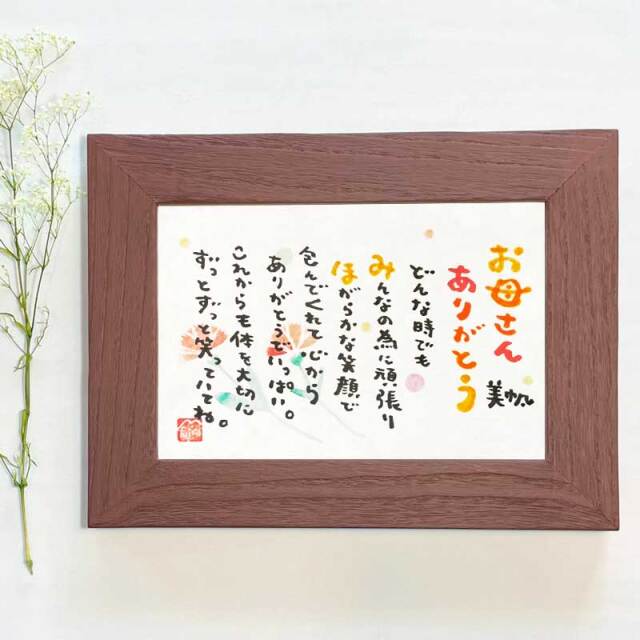 お母さん
ありがとう
美帆
どんな時でも
みんなの為に頑張り
ほがらかな笑顔で
包んでくれて 心から
ありがとうでいっぱい。
これからも体を大切に
ずっとずっと笑っていてね。